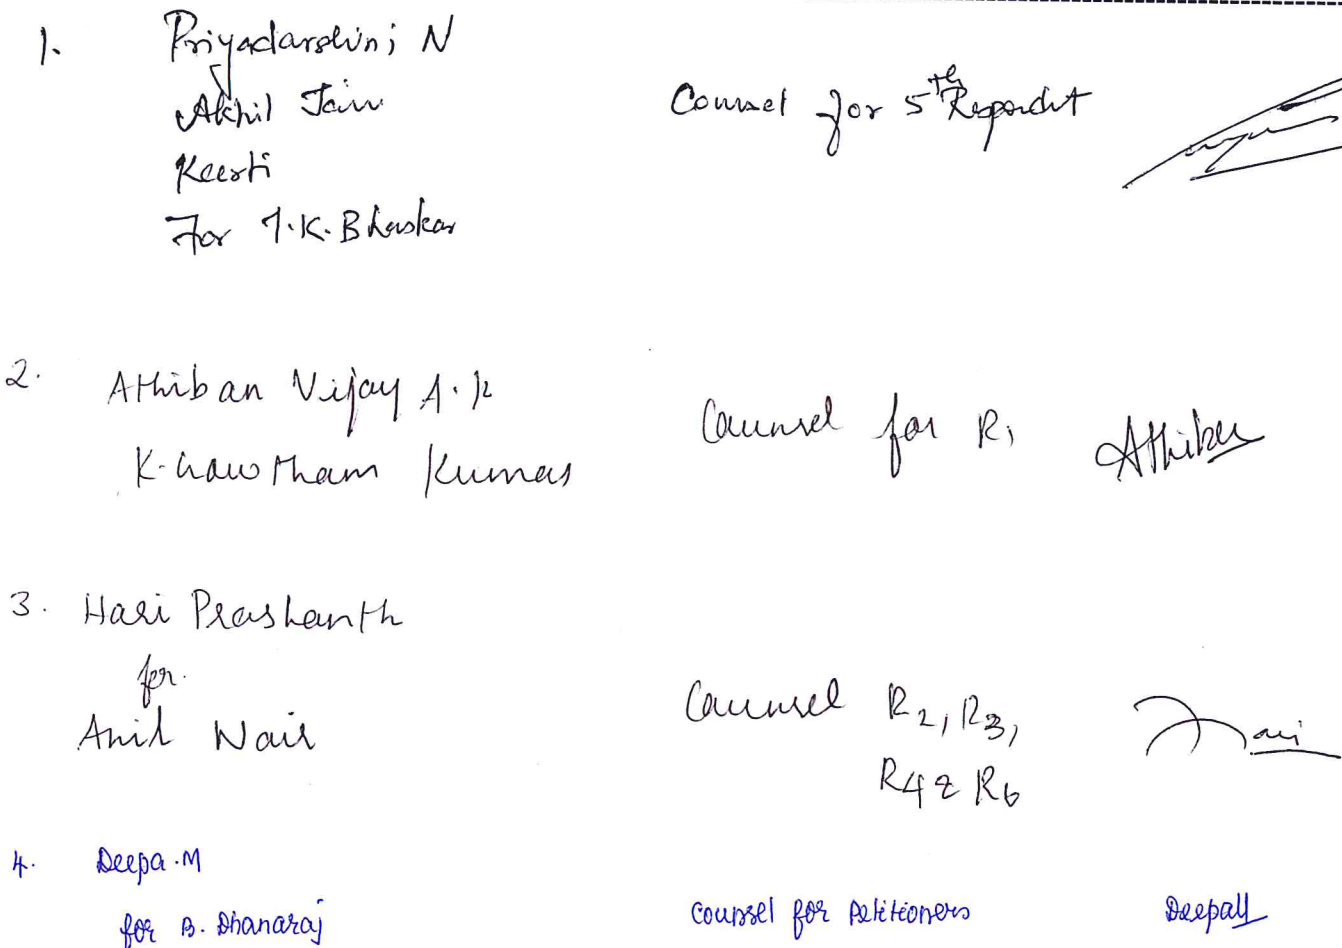 1. Priyadarshini N
Akhil Jain
Keerti
For T.K. Bhaskar
Counsel for 5th Respondent
2. Athiban Vijay A.K
K. Gowtham Kumar
Counsel for R1 Athiban
3. Hari Prashanth
for
Anil Nair
Counsel R2, R3,
R4 & R6
Hari
4. Deepa.M
for B. Dhanaraj
Counsel for Petitioners Deepa